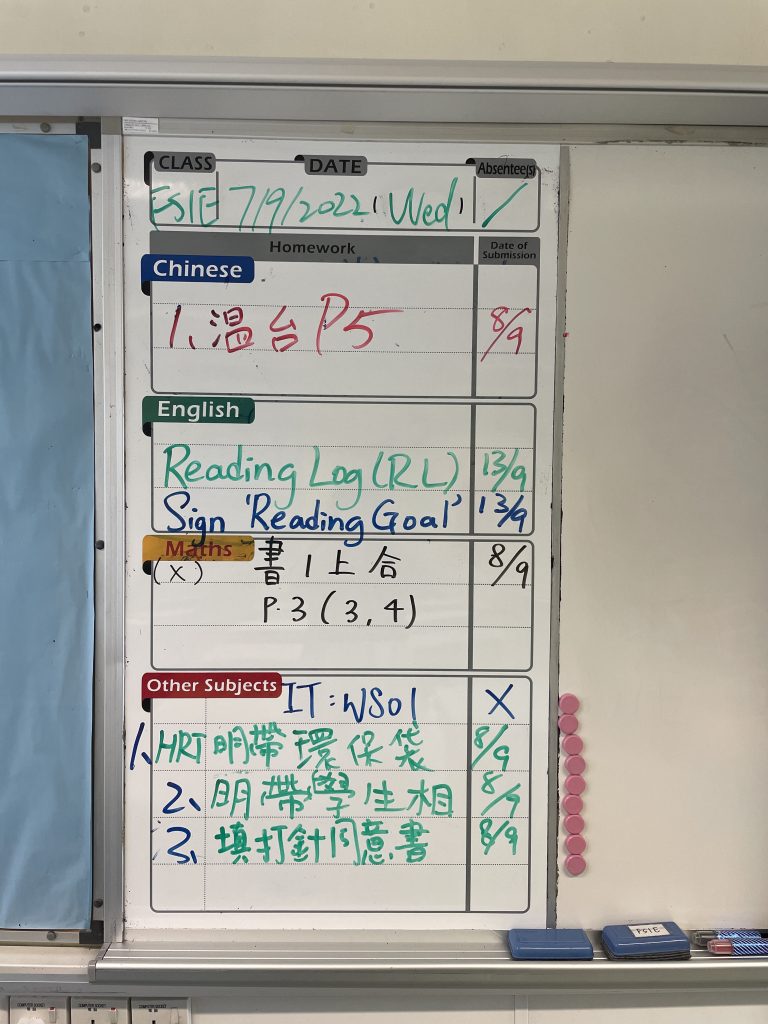 CLASS DATE Absentee(s)
7/9/2022 (Wed) /
Homework Date of Submission
Chinese
1、温台 P5 8/9
English
Reading Log (RL) 13/9
Sign 'Reading Goal' 13/9
Maths
(X) 書1上合 8/9
P.3 (3,4)
Other Subjects IT: WS01 X
1、HRT 明帶環保袋 8/9
2、明帶學生相 8/9
3、填打針同意書 8/9
COMPUTER SOCKET COMPUTER SOCKET COMPUTER SOCKET